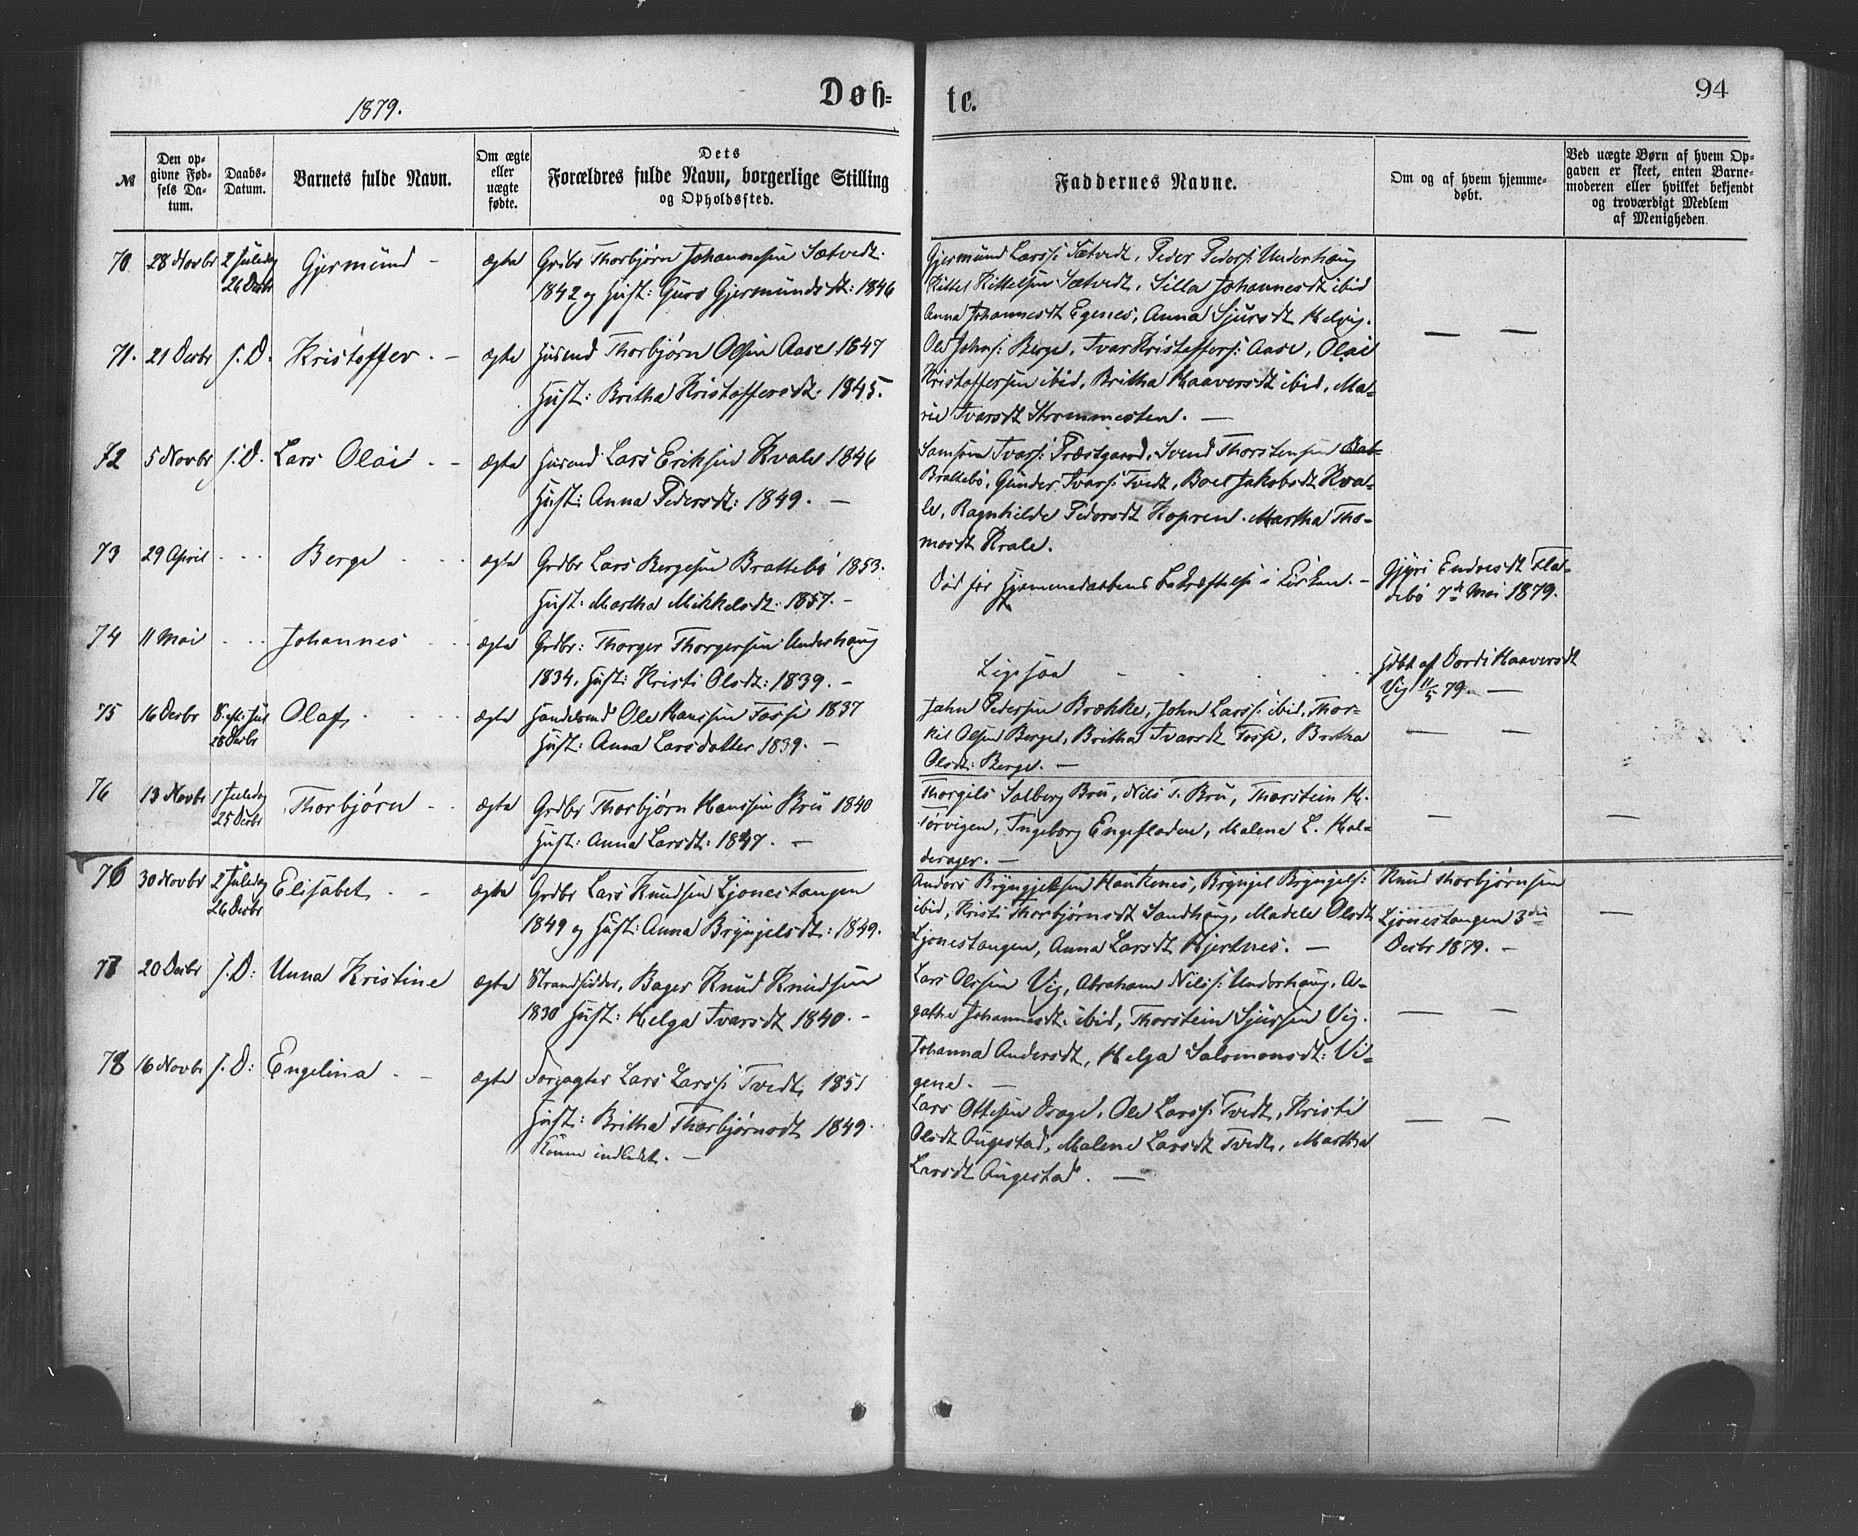 1879.
Døb-
te.
94
№
Den op-
givne Fød-
sels Da-
tum.
Daabs-
Datum.
Barnets fulde Navn.
Om ægte
eller
uægte
fødte.
Dets
Forældres fulde Navn, borgerlige Stilling
og Opholdssted.
Faddernes Navne.
Om og af hvem hjemme-
døbt.
Ved uægte Børn af hvem Op-
gaven er skeet, enten Barne-
moderen eller hvilket bekjendt
og troværdigt Medlem
af Menigheden.
70 28 Novbr 2 Juledag
26 Decbr
Gjermund - ægte
Grdbr Thorbjørn Johannesen Sætvedt
1842 og Hust: Guro Gjermundsdt: 1846
Gjermund Larss: Sætvedt, Peder Peders: Underhaug
Kittel Kittelsen Sætvedt, Silla Johannesdt ibid
Anna Johannesdt Egenes, Anna Sjursdt Helvig.
71. 21 Decbr s. D. Kristoffer. - ægte
Husmd Thorbjørn Olsen Aase 1847
Hust: Britha Kristoffersdt: 1845.
Ole Johns: Berge, Ivar Kristoffers: Aase, Olai
Kristoffersen ibid, Britha Haaversdt ibid, Ma-
rie Ivarsdt Strommesten. -
72 5 Novbr s. D. Lars Olai. - ægte
Husmd Lars Eriksen Kvale 1846
Hust: Anna Pedersdt: 1849. -
Samson Ivars: Præstgaard, Svend Thorstensen
Brattebø, Gunder Ivars: Tvedt, Boel Jakobsdt Kva-
le, Ragnhilde Pedersdt Kopren. Martha Tho-
masdt Kvale.
73 29 April Berge ægte
Grdbr Lars Bergesen Brattebø 1853.
Hust: Martha Mikkelsdt: 1857. -
Død før Hjemmedaabens Bekræftelse i Kirken. -
Gjyri Endresdt Fla-
debø 7de Mai 1879.
74 11 Mai Johannes ægte
Grdbr: Thorger Thorgersen Underhaug
1834. Hust: Kristi Olsdt: 1839. -
Ligesaa
Hdbt af Dordi Haaversdt
Vig 11/5 79. -
75 16 Decbr S. eft. Jul
28 Decbr
Olaf ægte
Handelsmd Ole Hanssen Fosse 1837
Hust: Anna Larsdatter 1839. -
John Pedersen Brække, John Larss: ibid, Thor-
kil Olsen Berge, Britha Ivarsdt Fosse, Britha
Olsdt: Berge. -
76 13 Novbr 1 Juledag
25 Decbr
Thorbjørn ægte
Grdbr Thorbjørn Hanssen Bru 1840
Hust: Anna Larsdt: 1847. -
Thorgils Solberg Bru, Nils T. Bru, Thorstein H.
Tørvigen, Ingeborg Engefladen, Malene L. Hal-
derager. -
76 30 Novbr 2 Juledag
26 Decbr
Elisabet ægte
Grdbr Lars Knudsen Ljonestangen
1849 og Hust: Anna Brynjelsdt: 1849.
Anders Brynjelsen Haukenes, Brynjel Brynjels:
ibid, Kristi Thorbjørnsdt Sandhaug, Madele Olsdt
Ljonestangen, Anna Larsdt Kjerkenes. -
Knud Thorbjørnsen
Ljonestangen 3die
Decbr 1879. -
77 20 Decbr s. D: Unna Kristine ægte
Strandsidder, Bager Knud Knudsen
1830 Hust: Helga Ivarsdt 1840. -
Lars Olssen Vig, Abraham Nilss: Underhaug, A-
gathe Johannesdt: ibid, Thorstein Sjursen Vig.
Johanna Andersdt, Helga Salomonsdt: Vi-
gene. -
78 16 Novbr s. D: Engelina. - ægte
Forpagter Lars Larss: Tvedt, 1851
Hust: Britha Thorbjørnsdt 1849.
Konen indledet. -
Lars Ottesen Drage, Ole Larss: Tvedt, Kristi
Olsdt Augestad, Malene Larsdt Tvedt, Martha
Larsdt Augestad. -